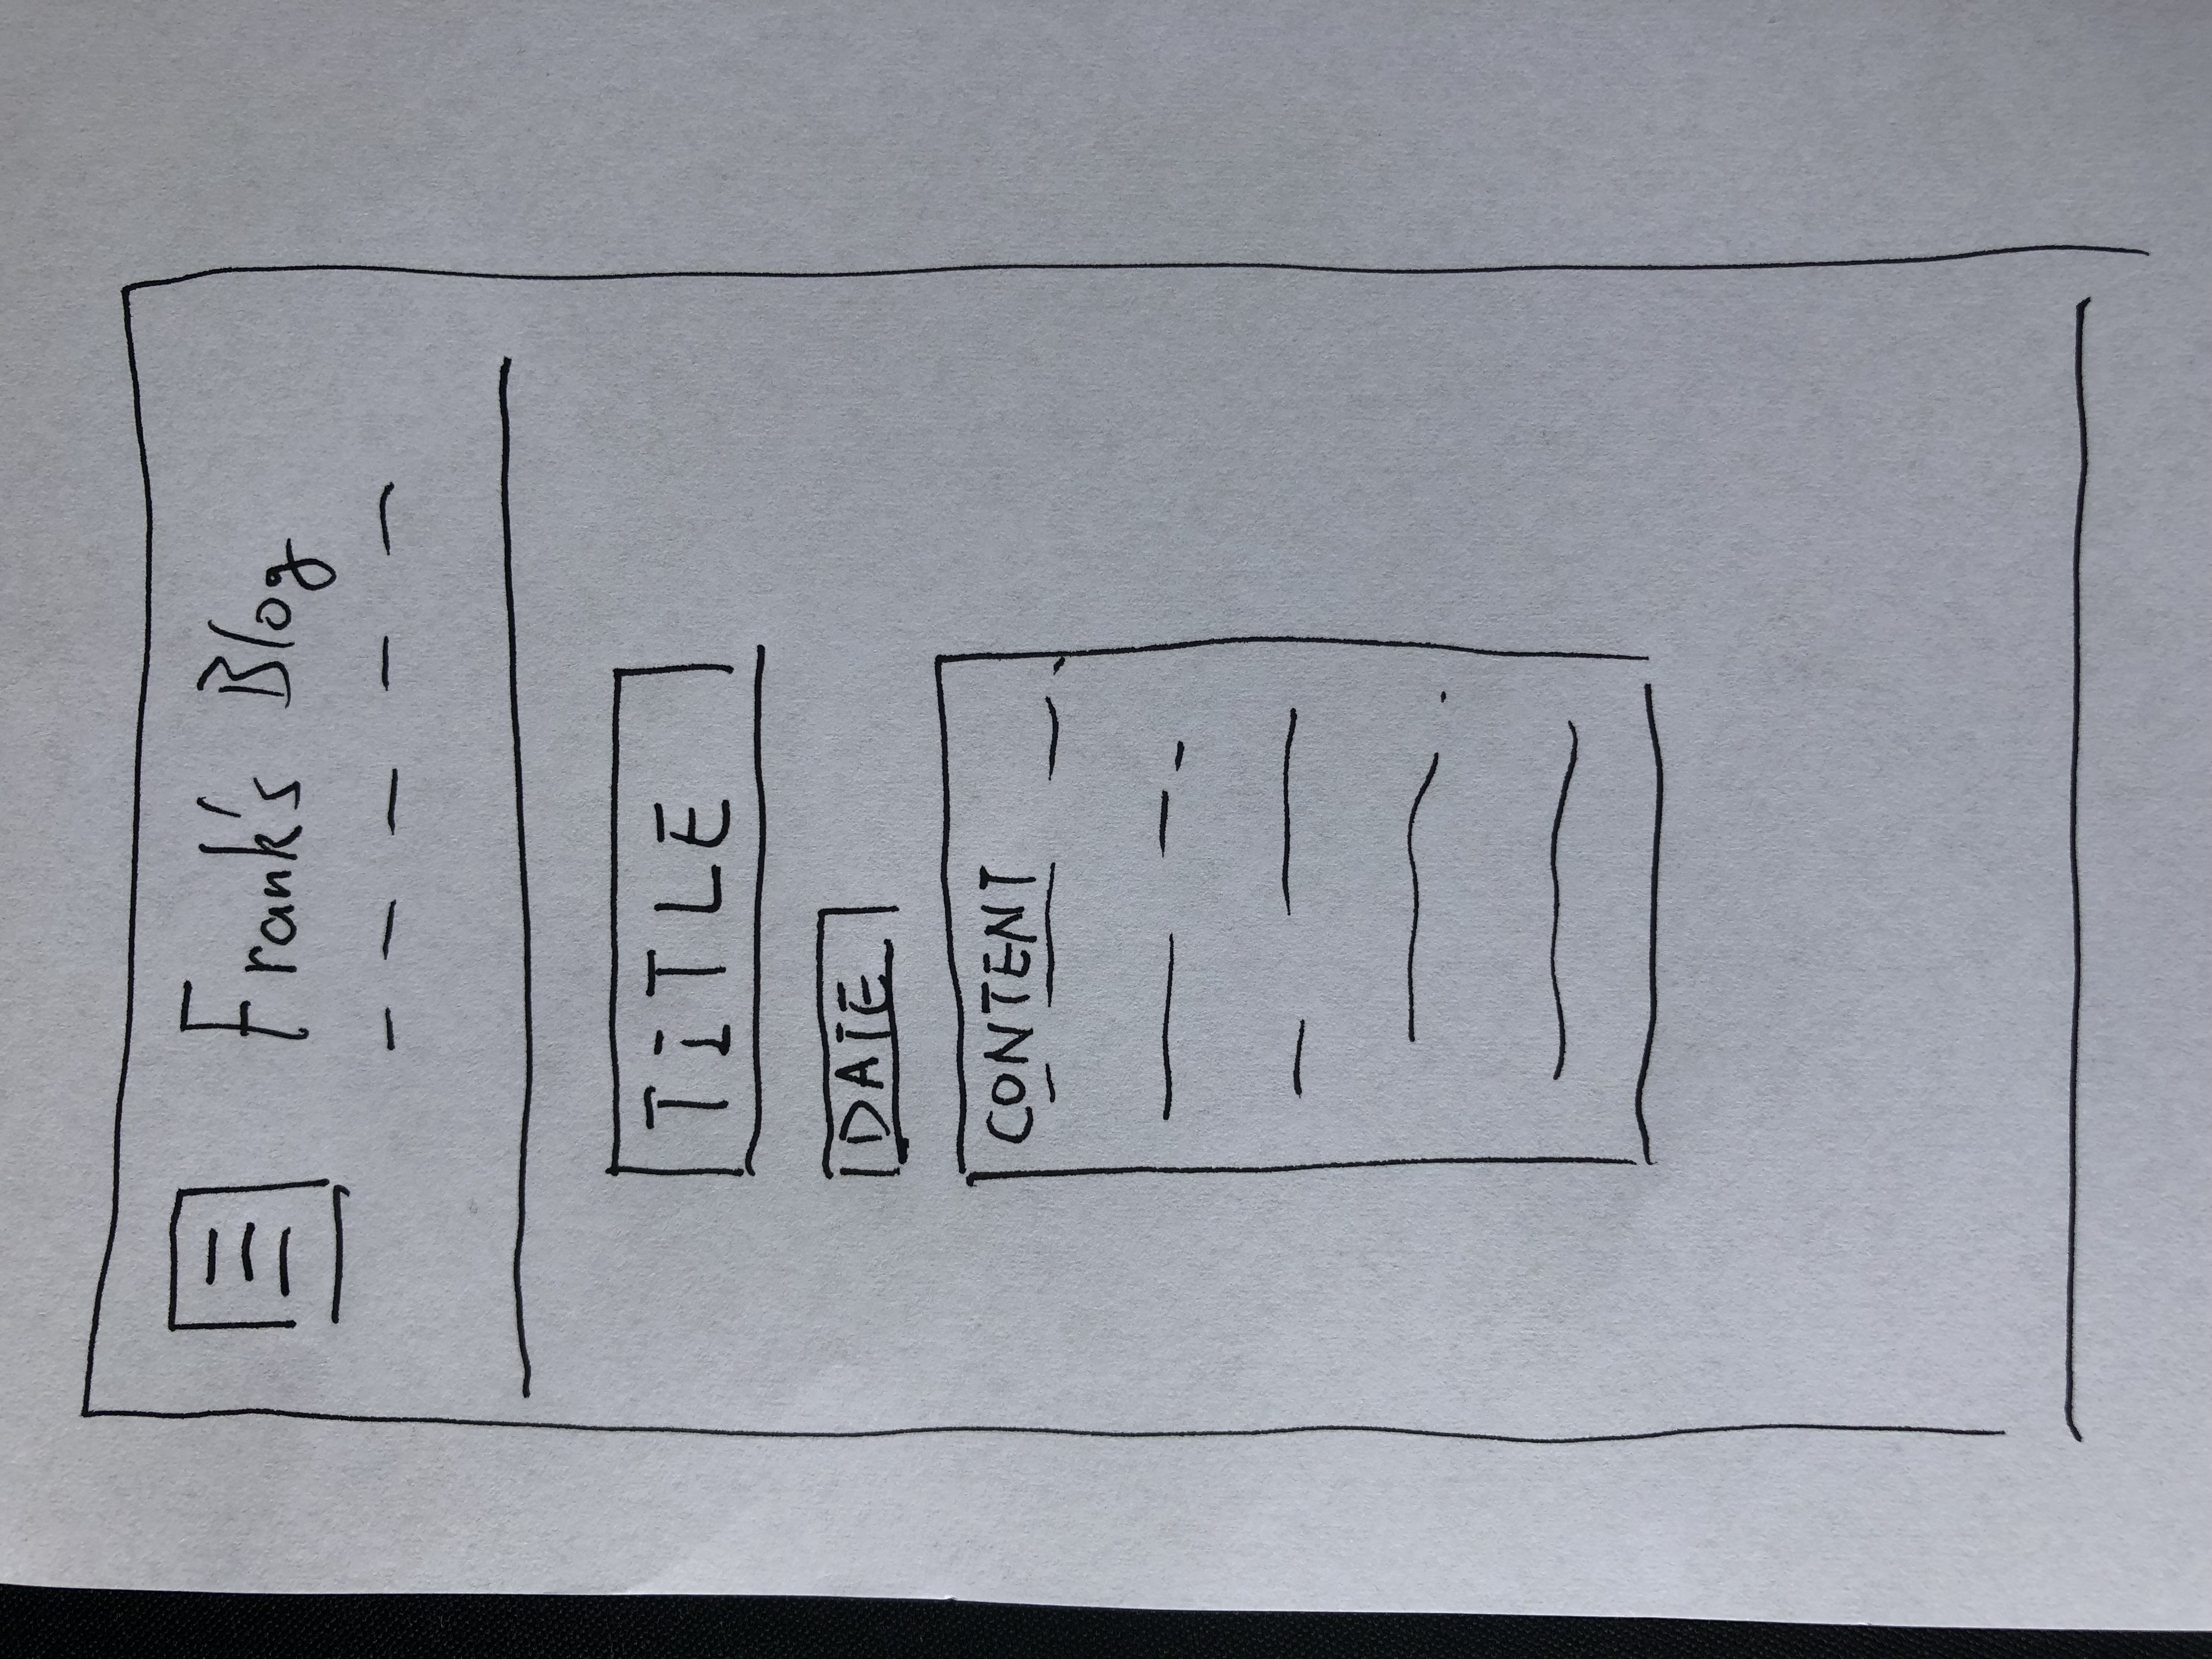 Frank's Blog
TITLE
DATE
CONTENT